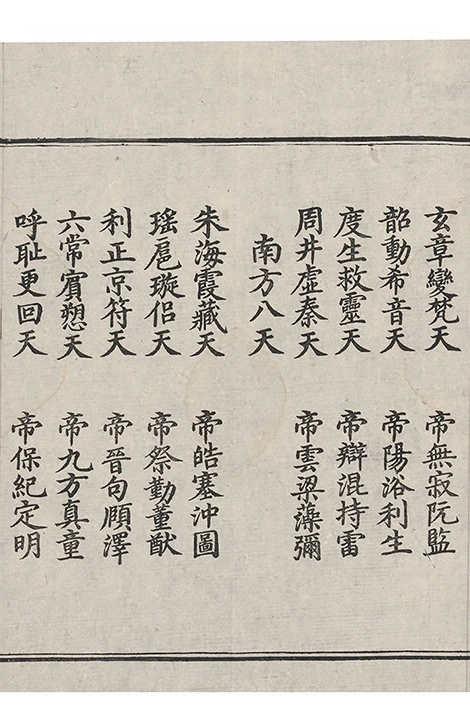 玄章變梵天　帝無寂阮監
韶動希音天　帝陽浴利生
度生救靈天　帝辯混持雷
周井虛秦天　帝雲梁藻彌
南方八天
朱海霞藏天　帝皓塞沖圖
瑶扈璇侶天　帝祭勤董猷
利正京符天　帝晉句頋澤
六常賓愬天　帝九方真童
呼耻更回天　帝保紀定明